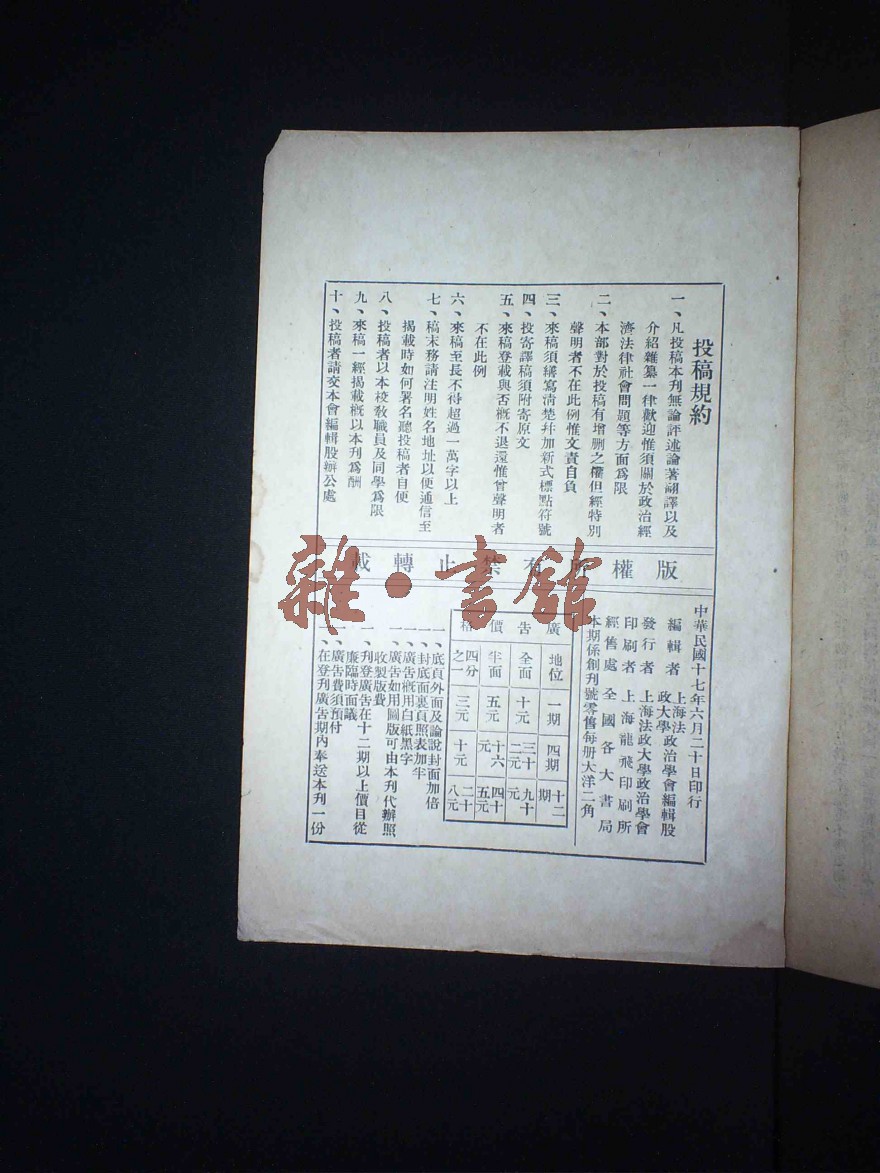 投稿規約
一、凡投稿本刊無論評述論著翻譯以及
介紹雜纂一律歡迎惟須關於政治經
濟法律社會問題等方面爲限
二、本部對於投稿有增刪之權但經特別
聲明者不在此例惟文責自負
三、來稿須繕寫清楚幷加新式標點符號
四、投寄譯稿須附寄原文
五、來稿登載與否概不退還惟曾聲明者
不在此例
六、來稿至長不得超過一萬字以上
七、稿末務請注明姓名地址以便通信至
揭載時如何署名聽投稿者自便
八、投稿者以本校教職員及同學爲限
九、來稿一經揭載概以本刊爲酬
十、投稿者請交本會編輯股辦公處
版權所有禁止轉載
雜·書館
中華民國十七年六月二十日印行
編輯者 上海法政大學政治學會編輯股
發行者 上海法政大學政治學會
印刷者 上海龍飛印刷所
經售處 全國各大書局
本期係創刊號零售每册大洋二角
廣告價格
地位 一期 四期 十二期
全面 十元 三十二元 九十元
半面 五元 十六元 四十五元
四分之一 三元 十元 二十八元
一、底頁外面及論說封面加倍
一、封底面裏頁照表加半
一、廣告概用白紙黑字
一、廣告如用圖版可由本刊代辦照
收製版費
一、刊登廣告在十二期以上價目從
廉臨時面議
一、廣告費須預付
一、在登刊廣告期內奉送本刊一份